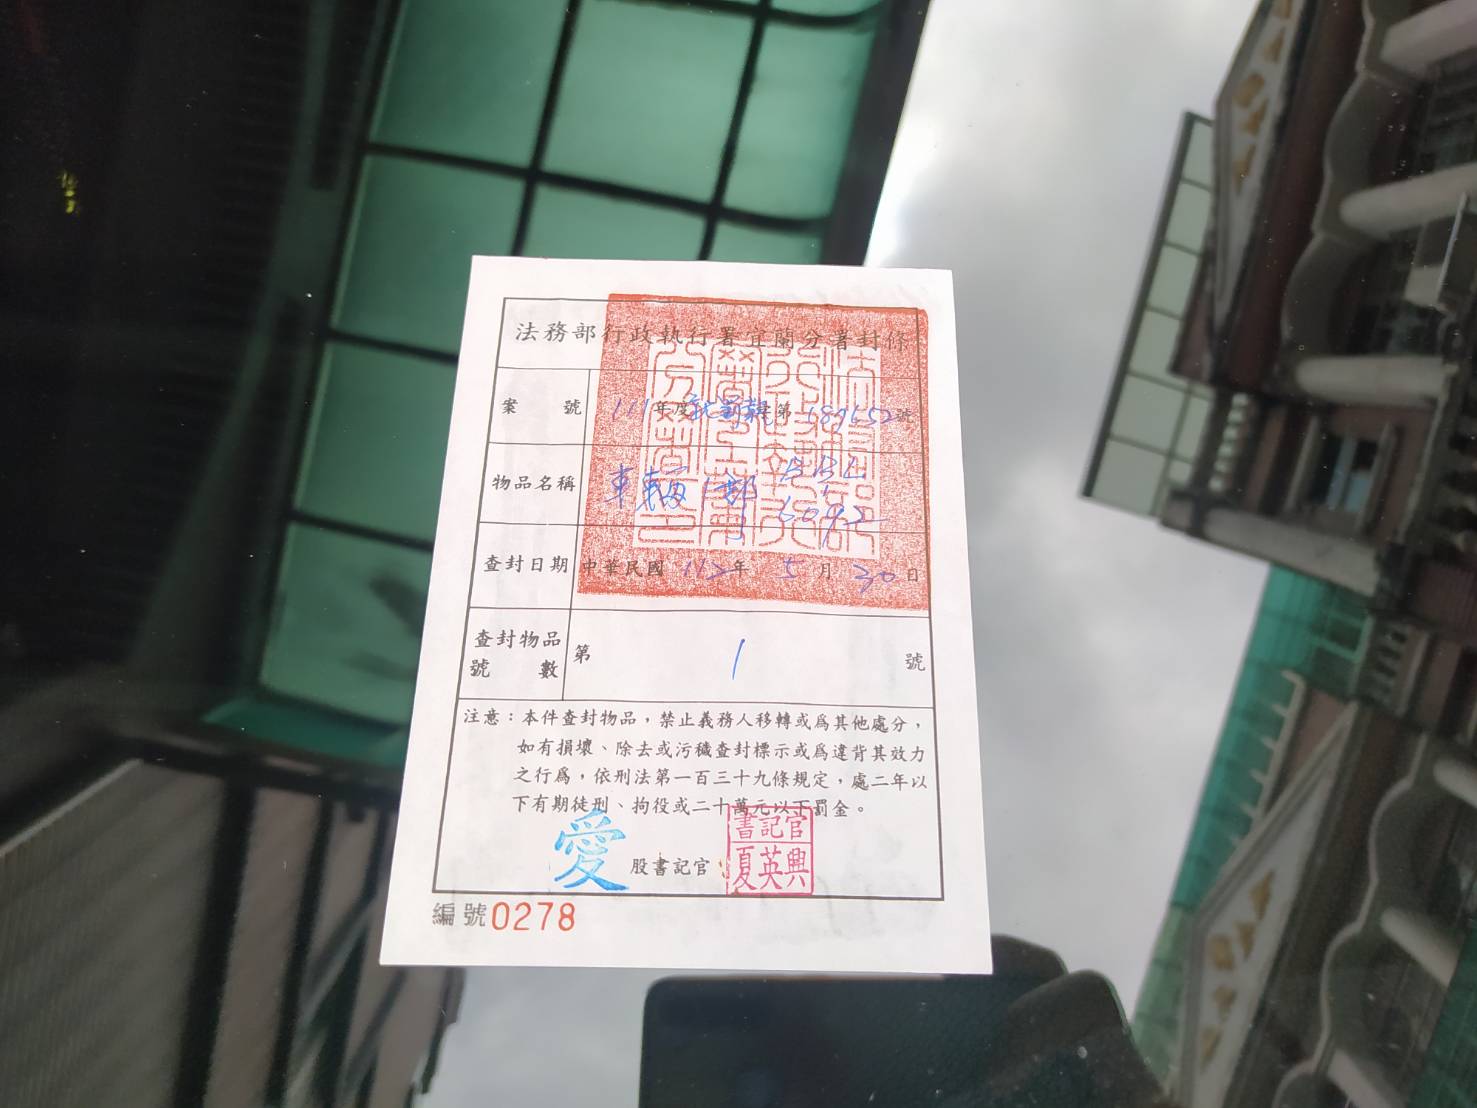 法務部行政執行署宜蘭分署封條
案號 111年度 第 號
物品名稱 車輛1部 BBL
6092
查封日期 中華民國112年5月30日
查封物品
號數 第 1 號
注意：本件查封物品，禁止義務人移轉或為其他處分，
如有損壞、除去或污穢查封標示或為違背其效力
之行為，依刑法第一百三十九條規定，處二年以
下有期徒刑、拘役或二十萬元以下罰金。
愛 股書記官
書記官
夏英興
編號0278